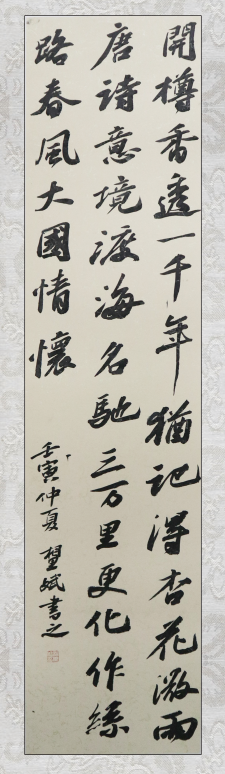 開樽香透一千年猶記得杏花微雨
唐詩意境渡海名馳三万里更化作絲
路春風大國情懷
壬寅仲夏 聖斌書之